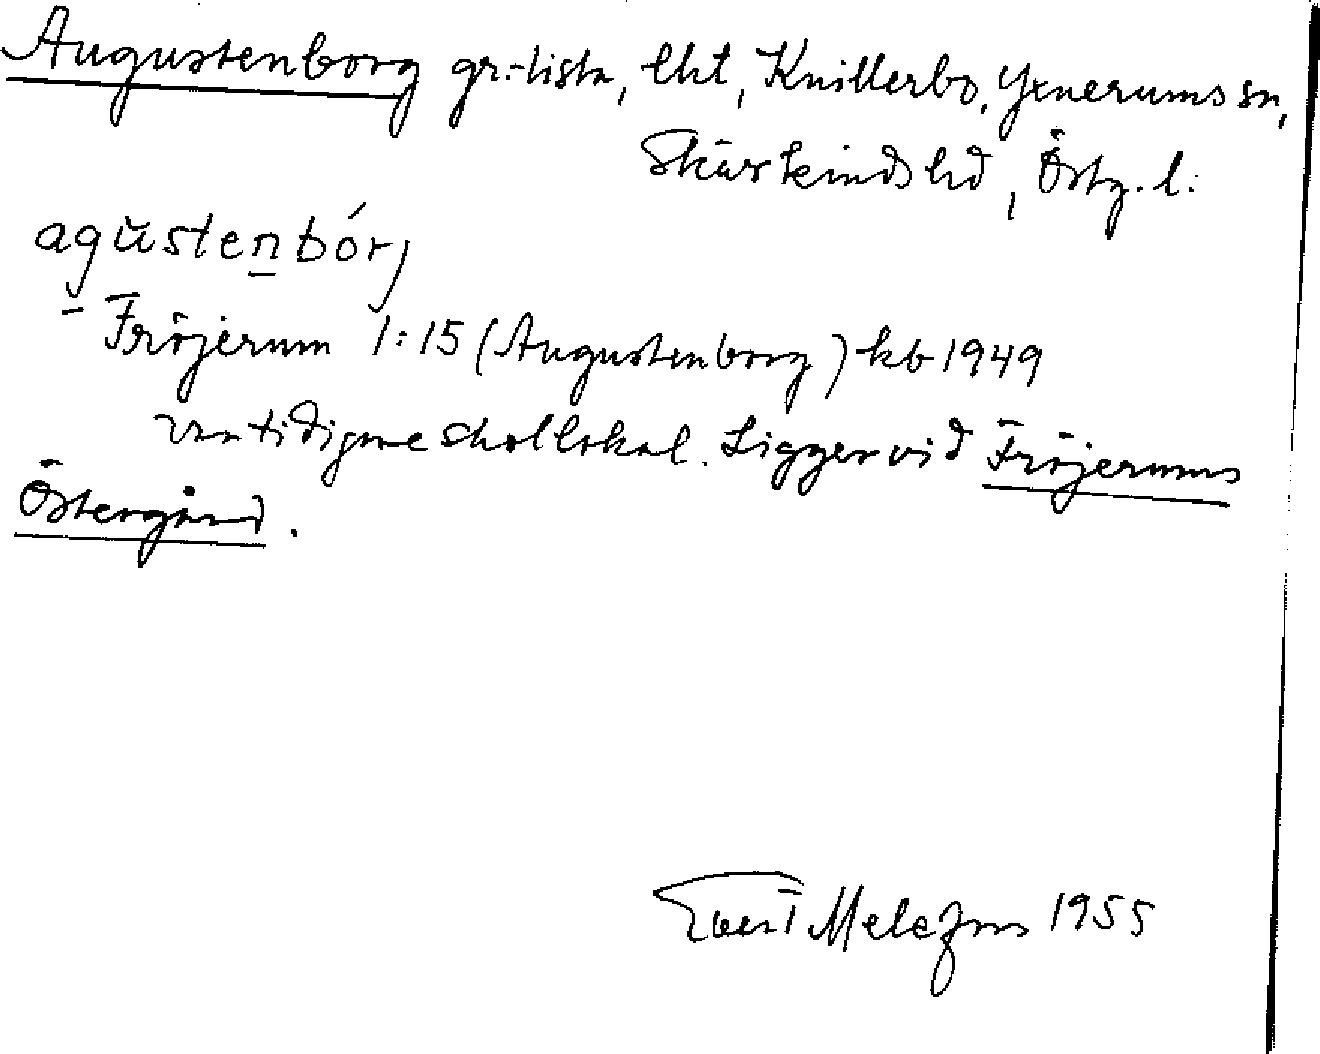 Augustenborg gr.-lista, lht, Knillerbo, Yxnerums sn,
Skärkinds hd, Östg. l.
agŭstenbórj
Fröjerum 1:15 (Augustenborg) kb 1949
skollokal. Ligger vid Fröjerums
Östergård.
Evert Melefors 1955